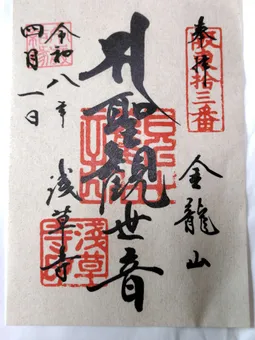 奉拝
坂東拾三番
金龍山
聖観世音
浅草寺
令和八年
四月一日